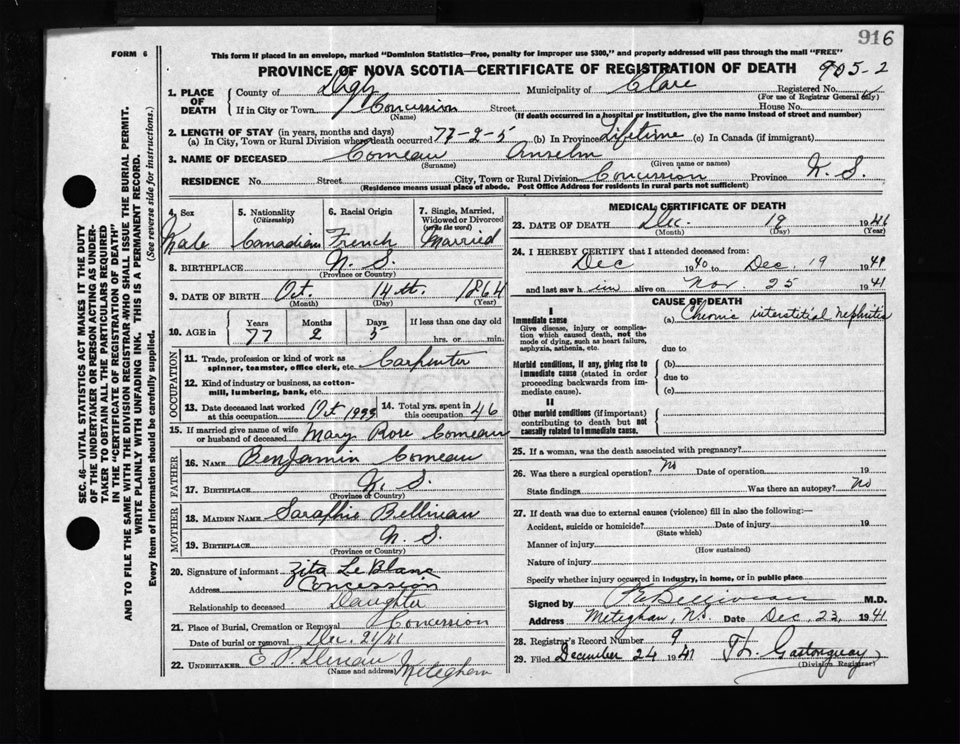 916
FORM 6
This form if placed in an envelope, marked "Dominion Statistics—Free, penalty for improper use $300," and properly addressed will pass through the mail "FREE"
PROVINCE OF NOVA SCOTIA—CERTIFICATE OF REGISTRATION OF DEATH 905-2
1. PLACE OF DEATH County of Digby Municipality of Clare Registered No.
(For use of Registrar General only)
If in City or Town Concession Street House No.
(Name) (If death occurred in a hospital or institution, give the name instead of street and number)
2. LENGTH OF STAY (in years, months and days)
(a) In City, Town or Rural Division where death occurred 77-2-5 (b) In Province Lifetime (c) In Canada (if immigrant)
3. NAME OF DECEASED Comeau Anselm
(Surname) (Given name or names)
RESIDENCE No. Street City, Town or Rural Division Concession Province N. S.
(Residence means usual place of abode. Post Office Address for residents in rural parts not sufficient)
4. Sex Male
5. Nationality (Citizenship) Canadian
6. Racial Origin French
7. Single, Married, Widowed or Divorced (write the word) Married
8. BIRTHPLACE N. S.
(Province or Country)
9. DATE OF BIRTH Oct. 14th. 1864
(Month) (Day) (Year)
10. AGE in Years 77 Months 2 Days 5 If less than one day old hrs. or min.
OCCUPATION
11. Trade, profession or kind of work as spinner, teamster, office clerk, etc. Carpenter
12. Kind of industry or business, as cotton-mill, lumbering, bank, etc.
13. Date deceased last worked at this occupation Oct
14. Total yrs. spent in this occupation 46
15. If married give name of wife or husband of deceased Mary Rose Comeau
FATHER
16. NAME Benjamin Comeau
17. BIRTHPLACE N. S.
(Province or Country)
MOTHER
18. MAIDEN NAME Saraphie Belliveau
19. BIRTHPLACE N. S.
(Province or Country)
20. Signature of informant Zita LeBlanc
Address Concession
Relationship to deceased Daughter
21. Place of Burial, Cremation or Removal Concession
Date of burial or removal Dec. 21/41
22. UNDERTAKER E. P. Meteghan
(Name and address)
MEDICAL CERTIFICATE OF DEATH
23. DATE OF DEATH Dec. 19 1941
(Month) (Day) (Year)
24. I HEREBY CERTIFY that I attended deceased from:
Dec 1940 to Dec. 19 1941
and last saw him alive on Nov. 25 1941
CAUSE OF DEATH
I
Immediate cause (a) Chronic interstitial nephritis
Give disease, injury or complication which caused death, not the mode of dying, such as heart failure, asphyxia, asthenia, etc.
due to
Morbid conditions, if any, giving rise to immediate cause (stated in order proceeding backwards from immediate cause).
(b)
due to
(c)
II
Other morbid conditions (if important) contributing to death but not causally related to immediate cause.
25. If a woman, was the death associated with pregnancy?
26. Was there a surgical operation? No Date of operation 19
State findings Was there an autopsy? No
27. If death was due to external causes (violence) fill in also the following:—
Accident, suicide or homicide? Date of injury 19
(State which)
Manner of injury
(How sustained)
Nature of injury
Specify whether injury occurred in industry, in home, or in public place
Signed by Belliveau M.D.
Address Meteghan, N.S. Date Dec. 23, 1941
28. Registrar's Record Number 9
29. Filed December 24 1941 Gastonguay
(Division Registrar)
SEC. 46—VITAL STATISTICS ACT MAKES IT THE DUTY
OF THE UNDERTAKER OR PERSON ACTING AS UNDER-
TAKER TO OBTAIN ALL THE PARTICULARS REQUIRED
IN THE "CERTIFICATE OF REGISTRATION OF DEATH"
AND TO FILE THE SAME WITH THE DIVISION REGISTRAR WHO SHALL ISSUE THE BURIAL PERMIT.
WRITE PLAINLY WITH UNFADING INK. THIS IS A PERMANENT RECORD.
Every item of information should be carefully supplied. (See reverse side for instructions.)